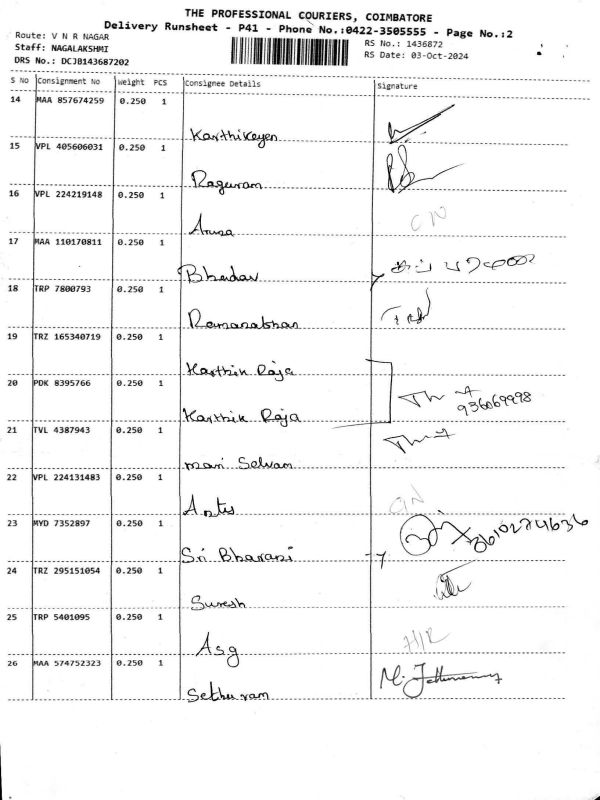 THE PROFESSIONAL COURIERS, COIMBATORE
Delivery Runsheet - P41 - Phone No.:0422-3505555 - Page No.:2
Route: V N R NAGAR
Staff: NAGALAKSHMI
DRS No.: DCJB143687202
RS No.: 1436872
RS Date: 03-Oct-2024
S No Consignment No Weight PCS Consignee Details Signature
14 MAA 857674259 0.250 1 Karthikeyen
15 VPL 405606031 0.250 1 Raguram
16 VPL 224219148 0.250 1 Aruna CN
17 MAA 110170811 0.250 1
18 TRP 7800793 0.250 1
19 TRZ 165340719 0.250 1 Karthik Raja
20 PDK 8395766 0.250 1 Karthik Raja
21 TVL 4387943 0.250 1 mari Selvam
22 VPL 224131483 0.250 1 CN
23 MYD 7352897 0.250 1 Sri Bharani
24 TRZ 295151054 0.250 1 Suresh
25 TRP 5401095 0.250 1 Asg
26 MAA 574752323 0.250 1 Sethuram